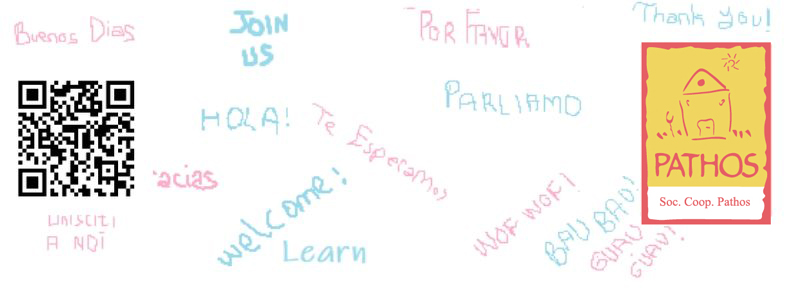 Buenos Dias
JOIN
US
POR FAVOR
Thank you!
HOLA!
PARLIAMO
Te Esperamos
acias
UNISCITI
A NOI
welcome!
Learn
WOF WOF!
BAU BAU!
GUAU
GUAU!
PATHOS
Soc. Coop. Pathos